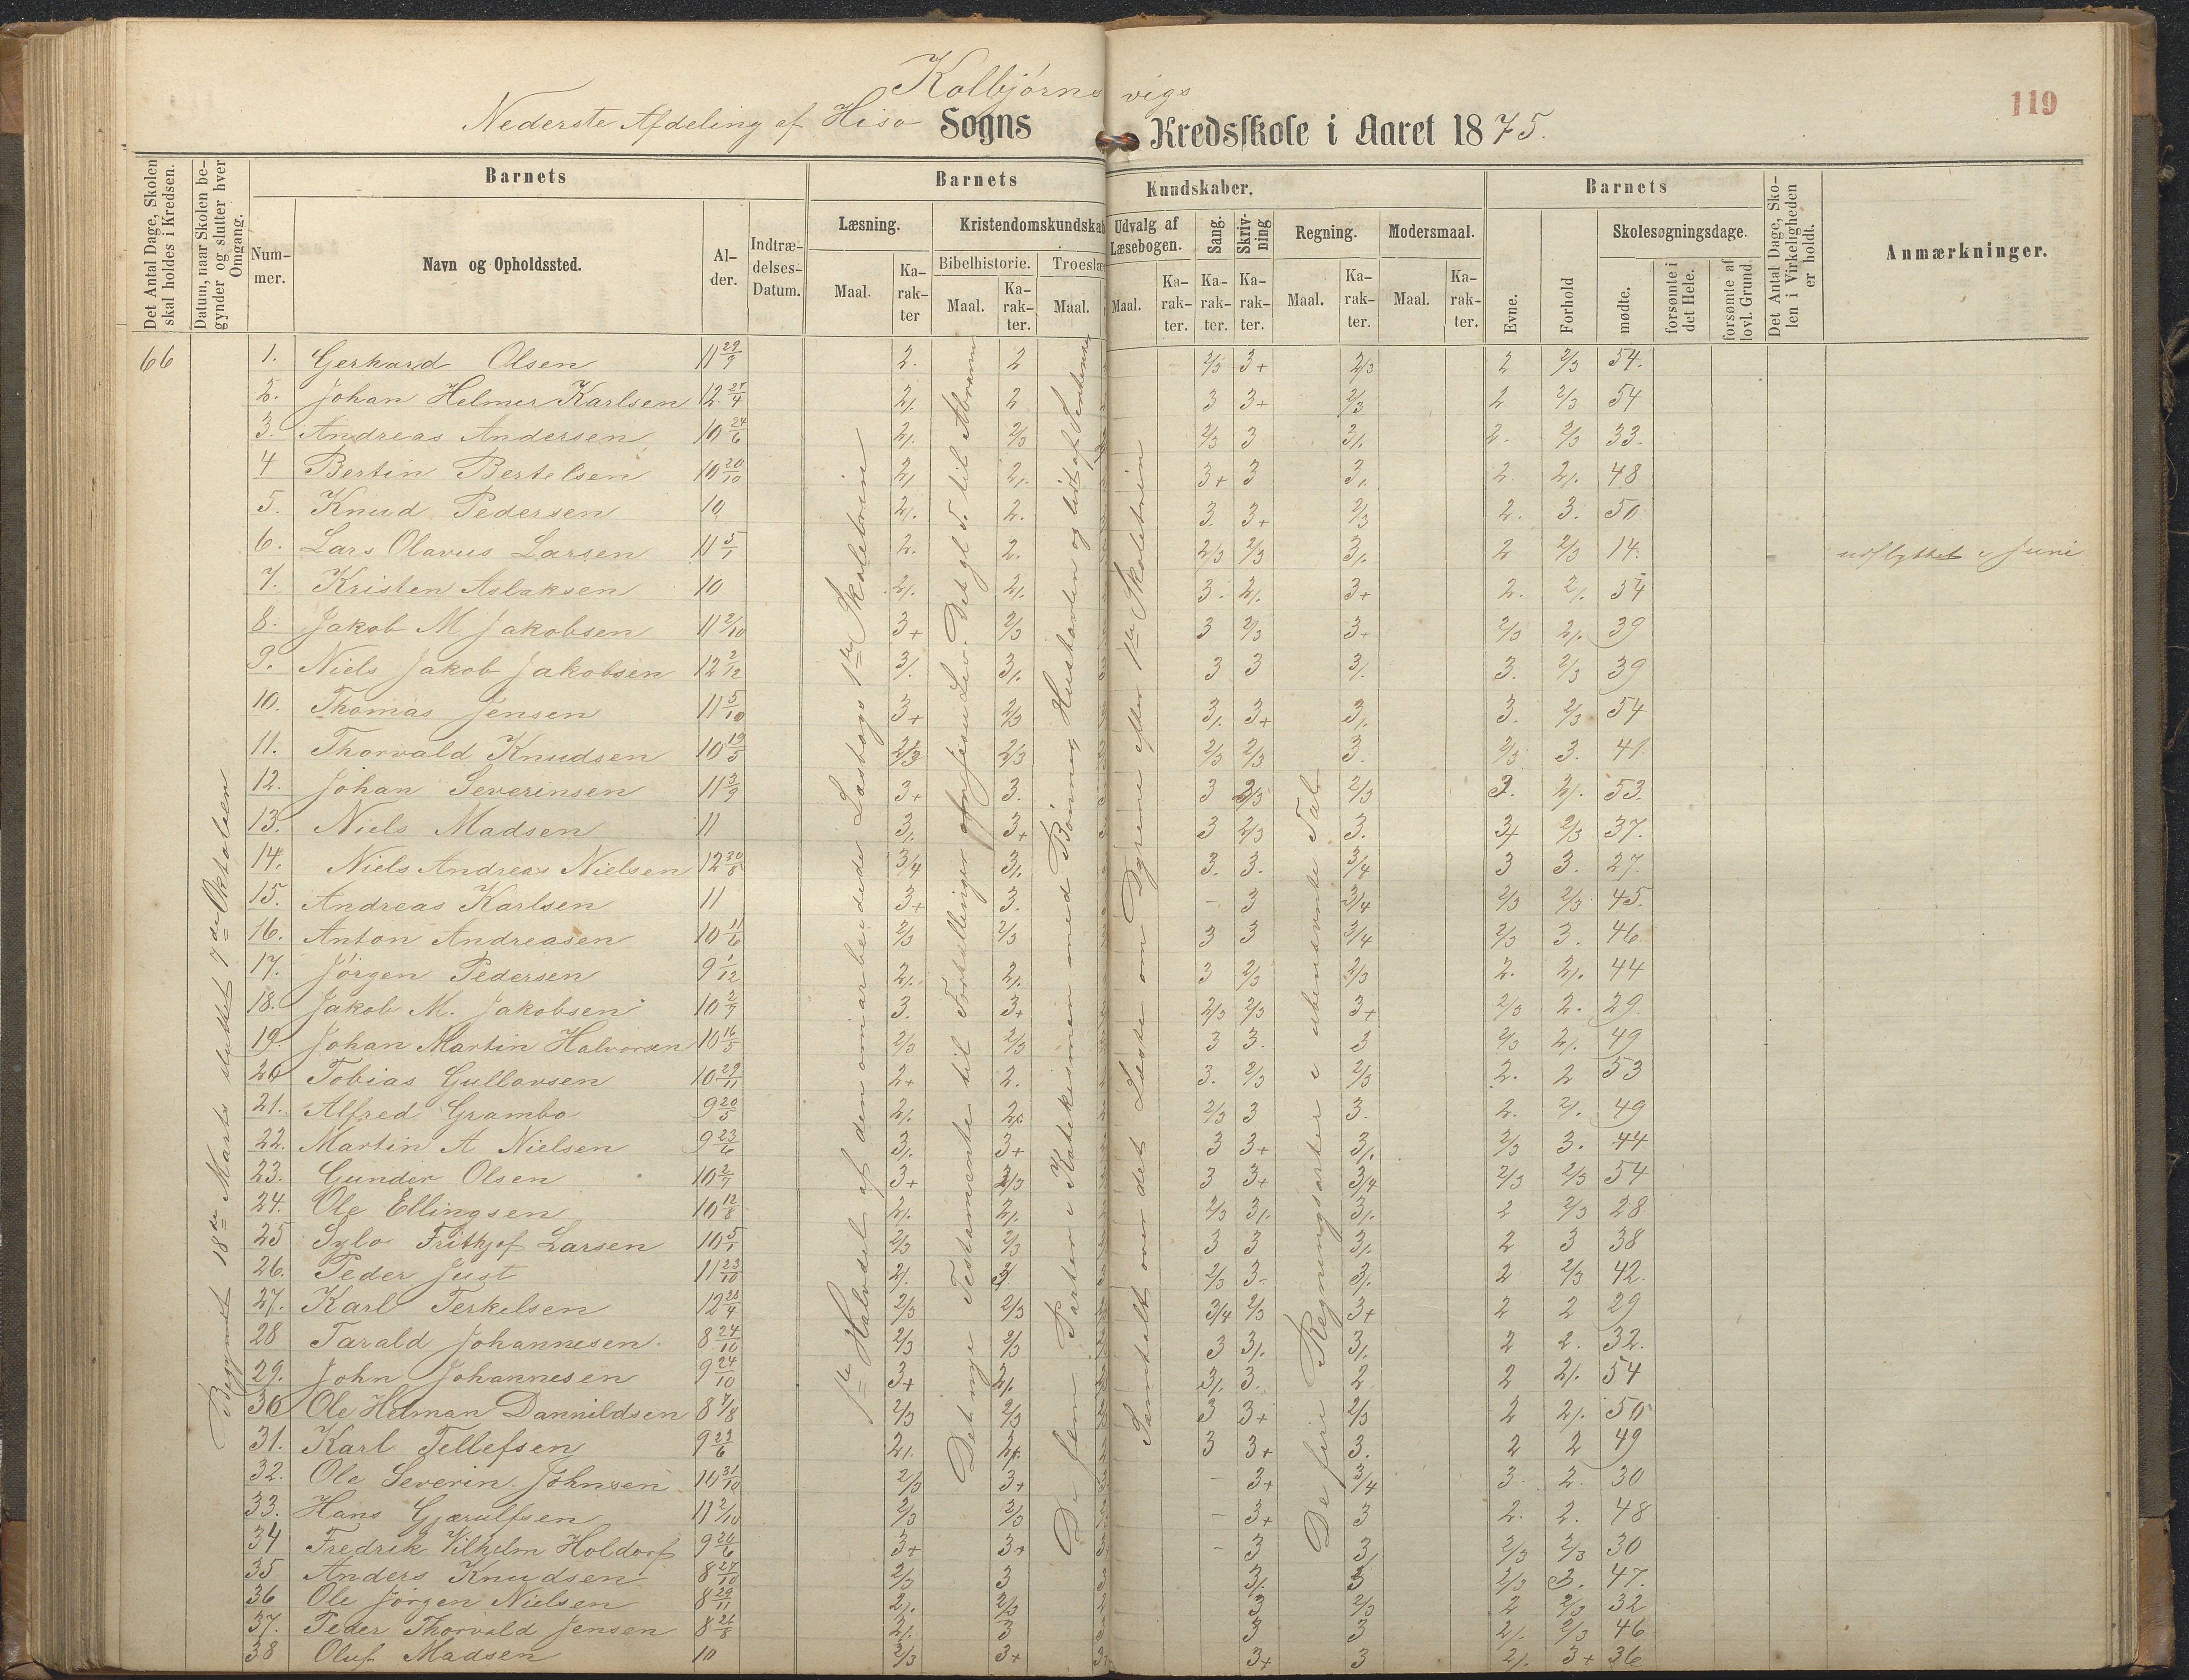 Kolbjørnsvigs
119
Nederste Afdeling af Hisø Sogns Kredsskole i Aaret 1875.
Det Antal Dage, Skolen skal holdes i Kredsen.
Datum, naar Skolen begynder og slutter hver Omgang.
Barnets
Nummer.
Navn og Opholdssted.
Alder.
Indtrædelses-Datum.
Barnets Kundskaber.
Læsning.
Maal.
Karakter
Kristendomskundskab
Bibelhistorie.
Maal.
Karakter.
Troeslæ
Maal.
Udvalg af Læsebogen.
Maal.
Karakter.
Sang.
Karakter.
Skrivning
Karakter.
Regning.
Maal.
Karakter.
Modersmaal.
Maal.
Karakter.
Barnets
Evne.
Forhold
Skolesøgningsdage.
mødte.
forsømte i det Hele.
forsømte af lovl. Grund.
Det Antal Dage, Skolen i Virkeligheden er holdt.
Anmærkninger.
66
Begyndt 18de Marts sluttet 7de Oktober
1ste Halvdel af den omarbeidede Læsebogs 1ste Skoletrin
Det nye Testamente til Fortællinger Jesu Liv. Det gl. T. til Abram
De fem Parter i Katekismen med Bønnen, Hustavlen og lidt af
Samtalt over det Læste om Dyrene efter 1ste Skoletrin
De fire Regningsarter i ubenævnte Tal
1. Gerhard Olsen 11 29/9 2. 2 2/3 3+ 2/3 2 2/3 54.
2. Johan Helmer Karlsen 12 27/4 2/. 2 3 3+ 2/3 2 2/3 54
3. Andreas Andersen 10 24/6 2/. 2/3 2/3 3 3/. 2. 2/3 33.
4 Bertin Bertelsen 10 20/10 2/. 2/. 3+ 3 3/. 2. 2/. 48
5. Knud Pedersen 10 2/. 2. 3. 3+ 2/3 2. 3. 50
6. Lars Olavus Larsen 11 5/1 2. 2. 2/3 2/3 3/. 2 2/3 14. udflyttet i Juni
7. Kristen Aslaksen 10 2/. 2/. 3. 2/. 3+ 2. 2/. 54
8. Jakob M Jakobsen 11 2/10 3+ 2/3 3 2/3 3+ 2/3 2/. 39
9. Niels Jakob Jakobsen 12 2/12 3/. 3/. 3 3 3/. 3. 2/3 39
10. Thomas Jensen 11 5/10 3+ 2/3 3/. 3+ 3/. 3. 2/3 54
11. Thorvald Knudsen 10 19/5 2/3 2/3 2/3 2/3 3. 2/3 3. 41.
12. Johan Severinsen 11 3/9 3+ 3. 3 2/3 2/3 3. 2/. 53.
13. Niels Madsen 11 3/. 3+ 3 2/3 3. 3+ 2/3 37.
14. Niels Andreas Nielsen 12 30/8 3/4 3/. 3. 3. 3/4 3 3. 27.
15. Andreas Karlsen 11 3+ 3. - 3 3/4 2/3 2/3 45.
16. Anton Andreasen 10 11/6 2/3 2/3 3 3 3/4 2/3 3. 46
17. Jörgen Pedersen 9 1/12 2/. 2/. 3 2/3 2/3 2. 2/. 44
18. Jakob M. Jakobsen 10 2/7 3. 3+ 2/3 2/3 3+ 2/3 2. 29.
19. Johan Martin Halvorsen 10 16/5 2/3 2/3 3 3. 3 2/3 2/. 49
20 Tobias Gullovsen 10 29/11 2+ 2. 3. 2/3 2/3 2. 2 53
21. Alfred Grambo 9 20/5 2/. 2/. 2/3 3 3. 2. 2/. 49
22. Martin A Nielsen 9 23/6 3/. 3+ 3 3+ 3/. 2/3 3. 44
23. Gunder Olsen 10 2/7 3+ 2/3 3 3+ 3/4 2/3 2/3 54
24. Ole Ellingsen 10 12/8 2/. 2/. 2/3 3/. 3/. 2 2/3 28
25 Sylo Frithjof Larsen 10 5/1 2/3 2/3 3 3 3/. 2 3 38
26. Peder Just 11 23/10 2/. 3/. 2/3 3- 3/. 2 2/3 42.
27. Karl Terkelsen 12 28/4 2/3 2/3 3/4 2/3 3+ 2 2 29
28 Tarald Johannesen. 8 24/10 2/3 2/3 3 3/. 3/. 2 2. 32.
29. John Johannesen 9 24/10 3+ 2/. 3/. 3. 2 2 2/. 54
30 Ole Helman Dannildsen 8 7/8 2/3 2/3 3 3+ 2/3 2 2/. 50
31. Karl Tellefsen 9 23/6 2/. 2/. 3 3+ 3. 2 2 49
32. Ole Severin Johnsen 10 31/10 2/3 3+ - 3+ 3/4 3. 2. 30
33. Hans Gjærulfsen 11 2/10 2/3 2/3 - 3+ 3 2. 2. 48
34 Fredrik Vilhelm Holdorf 9 20/6 3+ 3+ - 3 3/. 2/3 2/3 30
35 Anders Knudsen 8 27/10 2/3 3 3/. 3 2/3 3. 47.
36 Ole Jörgen Nielsen 8 29/11 2/. 2/3 3 2/3 2 2/3 32
37. Peder Thorvald Jensen 8 26/8 2/. 3 3 3 2/. 2/3 46
38 Oluf Madsen 10 2/3 3+ 3+ 3 2/. 3+ 36